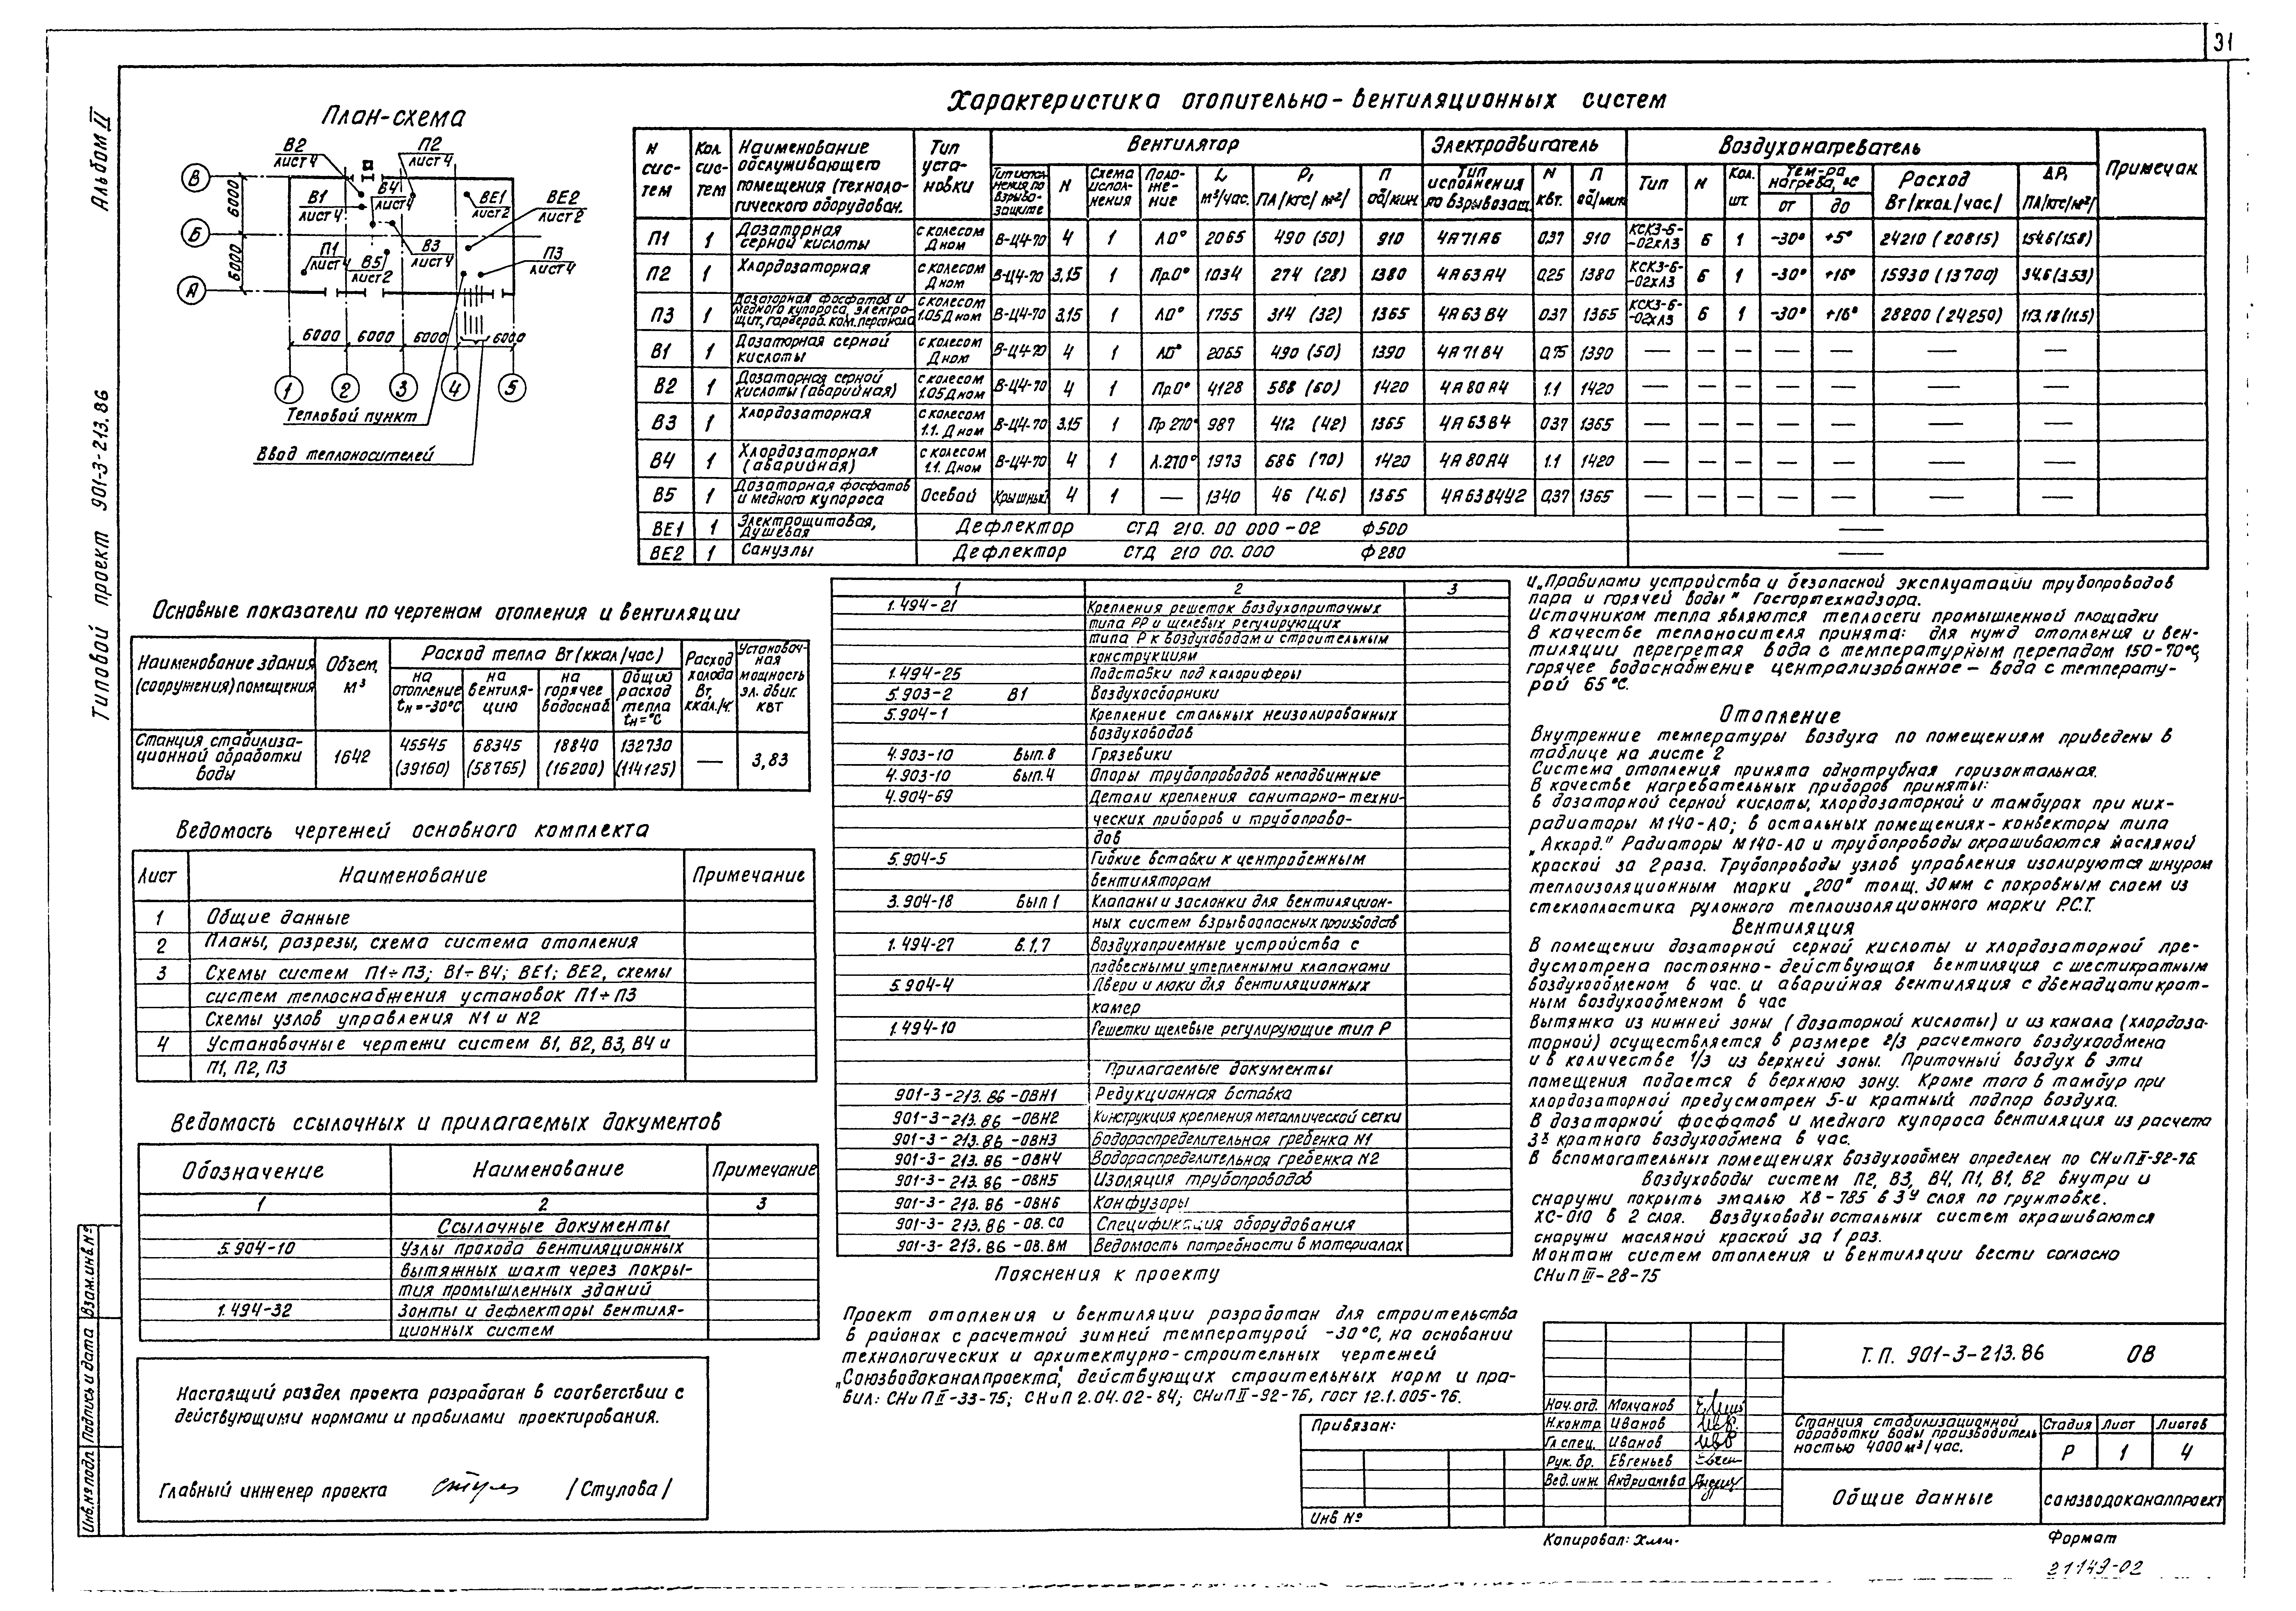 31
Альбом II
Типовой проект 901-3-213.86
План-схема
В2
лист 4
П2
лист 4
В1
лист 4
В4
лист 4
ВЕ1
лист 2
ВЕ2
лист 2
П1
лист 4
В5
лист 2
В3
лист 4
П3
лист 4
В
Б
А
6000
6000
6000 6000 6000 6000
1 2 3 4 5
Тепловой пункт
Ввод теплоносителей
Характеристика отопительно-вентиляционных систем
N сис-тем | Кол. сис-тем | Наименование обслуживающего помещения (техноло-гического оборудован. | Тип уста-новки | Вентилятор | Электродвигатель | Воздухонагреватель | Примечан.
Тип испол-нения по взрыво-защите | N | Схема испол-нения | Поло-же-ние | L, м³/час. | Р, ПА/кгс/м²/ | П об/мин. | Тип исполнения по взрывозащ. | N квт. | П об/мин | Тип | N | Кол. шт. | Тем-ра нагрева, °С от до | Расход Вт/ккал/час/ | ΔР, ПА/кгс/м²/
П1 1 Дозаторная серной кислоты с колесом Дном В-Ц4-70 4 1 Л0° 2065 490 (50) 910 4А71А6 0.37 910 КСК3-6-02ХЛ3 6 1 -30° +5° 24210 (20815) 154.6 (15.8)
П2 1 Хлордозаторная с колесом Дном В-Ц4-70 3.15 1 Пр.0° 1034 274 (28) 1380 4А63А4 0.25 1380 КСК3-6-02ХЛ3 6 1 -30° +16° 15930 (13700) 34.6 (3.53)
П3 1 Дозаторная фосфатов и медного купороса, электро-щит, гардероб. ком. персонала с колесом 1.05 Дном В-Ц4-70 3.15 1 Л0° 1755 314 (32) 1365 4А63В4 0.37 1365 КСК3-6-02ХЛ3 6 1 -30° +16° 28200 (24250) 113.18 (11.5)
В1 1 Дозаторная серной кислоты с колесом Дном В-Ц4-70 4 1 Л0° 2065 490 (50) 1390 4А71В4 0.75 1390 — — — — — — —
В2 1 Дозаторная серной кислоты (аварийная) с колесом 1.05 Дном В-Ц4-70 4 1 Пр.0° 4128 588 (60) 1420 4А80А4 1.1 1420 — — — — — — —
В3 1 Хлордозаторная с колесом 1.1. Дном В-Ц4-70 3.15 1 Пр 270° 987 412 (42) 1365 4А63В4 0.37 1365 — — — — — — —
В4 1 Хлордозаторная (аварийная) с колесом 1.1. Дном В-Ц4-70 4 1 Л.270° 1973 686 (70) 1420 4А80А4 1.1 1420 — — — — — — —
В5 1 Дозаторная фосфатов и медного купороса Осевой Крышный 4 1 — 1340 46 (4.6) 1365 4А63В4У2 0.37 1365 — — — — — — —
ВЕ1 1 Электрощитовая, Душевая Дефлектор СТД 210.00 000-02 ф500 —
ВЕ2 1 Санузлы Дефлектор СТД 210 00.000 ф280 —
Основные показатели по чертежам отопления и вентиляции
Наименование здания (сооружения) помещения | Объем, м³ | Расход тепла Вт (ккал/час) | Расход холода Вт, ккал./ч. | Установоч-ная мощность эл. двиг. квт
на отопление tн=-30°С | на вентиля-цию | на горячее водоснаб. | Общий расход тепла tн=°С
Станция стабилиза-ционной обработки воды 1642 45545 (39160) 68345 (58765) 18840 (16200) 132730 (114125) — 3,83
Ведомость чертежей основного комплекта
Лист | Наименование | Примечание
1 Общие данные
2 Планы, разрезы, схема система отопления
3 Схемы систем П1÷П3; В1÷В4; ВЕ1; ВЕ2, схемы
систем теплоснабжения установок П1÷П3
Схемы узлов управления N1 и N2
4 Установочные чертежи систем В1, В2, В3, В4 и
П1, П2, П3
Ведомость ссылочных и прилагаемых документов
Обозначение | Наименование | Примечание
1 2 3
Ссылочные документы
5.904-10 Узлы прохода вентиляционных
вытяжных шахт через покры-
тия промышленных зданий
1.494-32 Зонты и дефлекторы вентиля-
ционных систем
Настоящий раздел проекта разработан в соответствии с
действующими нормами и правилами проектирования.
Главный инженер проекта /Стулова/
1 2 3
1.494-21 Крепления решеток воздухоприточных
типа РР и щелевых регулирующих
типа Р к воздуховодам и строительным
конструкциям
1.494-25 Подставки под калориферы
5.903-2 В1 Воздухосборники
5.904-1 Крепление стальных неизолированных
воздуховодов
4.903-10 Вып. 8 Грязевики
4.903-10 Вып. 4 Опоры трубопроводов неподвижные
4.904-69 Детали крепления санитарно-техни-
ческих приборов и трубопрово-
дов
5.904-5 Гибкие вставки к центробежным
вентиляторам
3.904-18 Вып 1 Клапаны и заслонки для вентиляцион-
ных систем взрывоопасных производств
1.494-27 в.1,7 Воздухоприемные устройства с
подвесными утепленными клапанами
5.904-4 Двери и люки для вентиляционных
камер
1.494-10 Решетки щелевые регулирующие тип Р
Прилагаемые документы
901-3-213.86-ОВН1 Редукционная вставка
901-3-213.86-ОВН2 Конструкция крепления металлической сетки
901-3-213.86-ОВН3 Водораспределительная гребенка N1
901-3-213.86-ОВН4 Водораспределительная гребенка N2
901-3-213.86-ОВН5 Изоляция трубопроводов
901-3-213.86-ОВН6 Канфузоры
901-3-213.86-ОВ.СО Спецификация оборудования
901-3-213.86-ОВ.ВМ Ведомость потребности в материалах
Пояснения к проекту
Проект отопления и вентиляции разработан для строительства
в районах с расчетной зимней температурой -30°С, на основании
технологических и архитектурно-строительных чертежей
„Союзводоканалпроекта", действующих строительных норм и пра-
вил: СНиП II-33-75; СНиП 2.04.02-84; СНиП II-92-76, ГОСТ 12.1.005-76.
и „Правилами устройства и безопасной эксплуатации трубопроводов
пара и горячей воды" Госгортехнадзора.
Источником тепла являются теплосети промышленной площадки
В качестве теплоносителя принята: для нужд отопления и вен-
тиляции перегретая вода с температурным перепадом 150-70°С,
горячее водоснабжение централизованное — вода с температу-
рой 65°С.
Отопление
Внутренние температуры воздуха по помещениям приведены в
таблице на листе 2
Система отопления принята однотрубная горизонтальная.
В качестве нагревательных приборов приняты:
в дозаторной серной кислоты, хлордозаторной и тамбурах при них-
радиаторы М140-АО; в остальных помещениях-конвекторы типа
„Аккорд." Радиаторы М140-АО и трубопроводы окрашиваются масляной
краской за 2 раза. Трубопроводы узлов управления изолируются шнуром
теплоизоляционным марки „200" толщ. 30мм с покровным слоем из
стеклопластика рулонного теплоизоляционного марки Р.С.Т.
Вентиляция
В помещении дозаторной серной кислоты и хлордозаторной пре-
дусмотрена постоянно-действующая вентиляция с шестикратным
воздухообменом в час. и аварийная вентиляция с двенадцатикрат-
ным воздухообменом в час
Вытяжка из нижней зоны (дозаторной кислоты) и из канала (хлордоза-
торной) осуществляется в размере 2/3 расчетного воздухообмена
и в количестве 1/3 из верхней зоны. Приточный воздух в эти
помещения подается в верхнюю зону. Кроме того в тамбур при
хлордозаторной предусмотрен 5-и кратный подпор воздуха.
В дозаторной фосфатов и медного купороса вентиляция из расчета
3х кратного воздухообмена в час.
В вспомогательных помещениях воздухообмен определен по СНиП II-92-76
Воздуховоды систем П2, В3, В4, П1, В1, В2 внутри и
снаружи покрыть эмалью ХВ-785 в 3У слоя по грунтовке.
ХС-010 в 2 слоя. Воздуховоды остальных систем окрашиваются
снаружи масляной краской за 1 раз.
Монтаж систем отопления и вентиляции вести согласно
СНиП III-28-75
Привязан:
Инв №
Т.П. 901-3-213.86 ОВ
Нач. отд. Молчанов
Н.контр. Иванов
Гл спец. Иванов
Рук. бр. Евгеньев
Вед. инж. Андрианова
Станция стабилизационной
обработки воды производитель
ностью 4000 м³/час.
Стадия Лист Листов
Р 1 4
Общие данные
СОЮЗВОДОКАНАЛПРОЕКТ
Копировал:
Формат
21149-02
Инв.№ подл. Подпись и дата Взам.инв.№